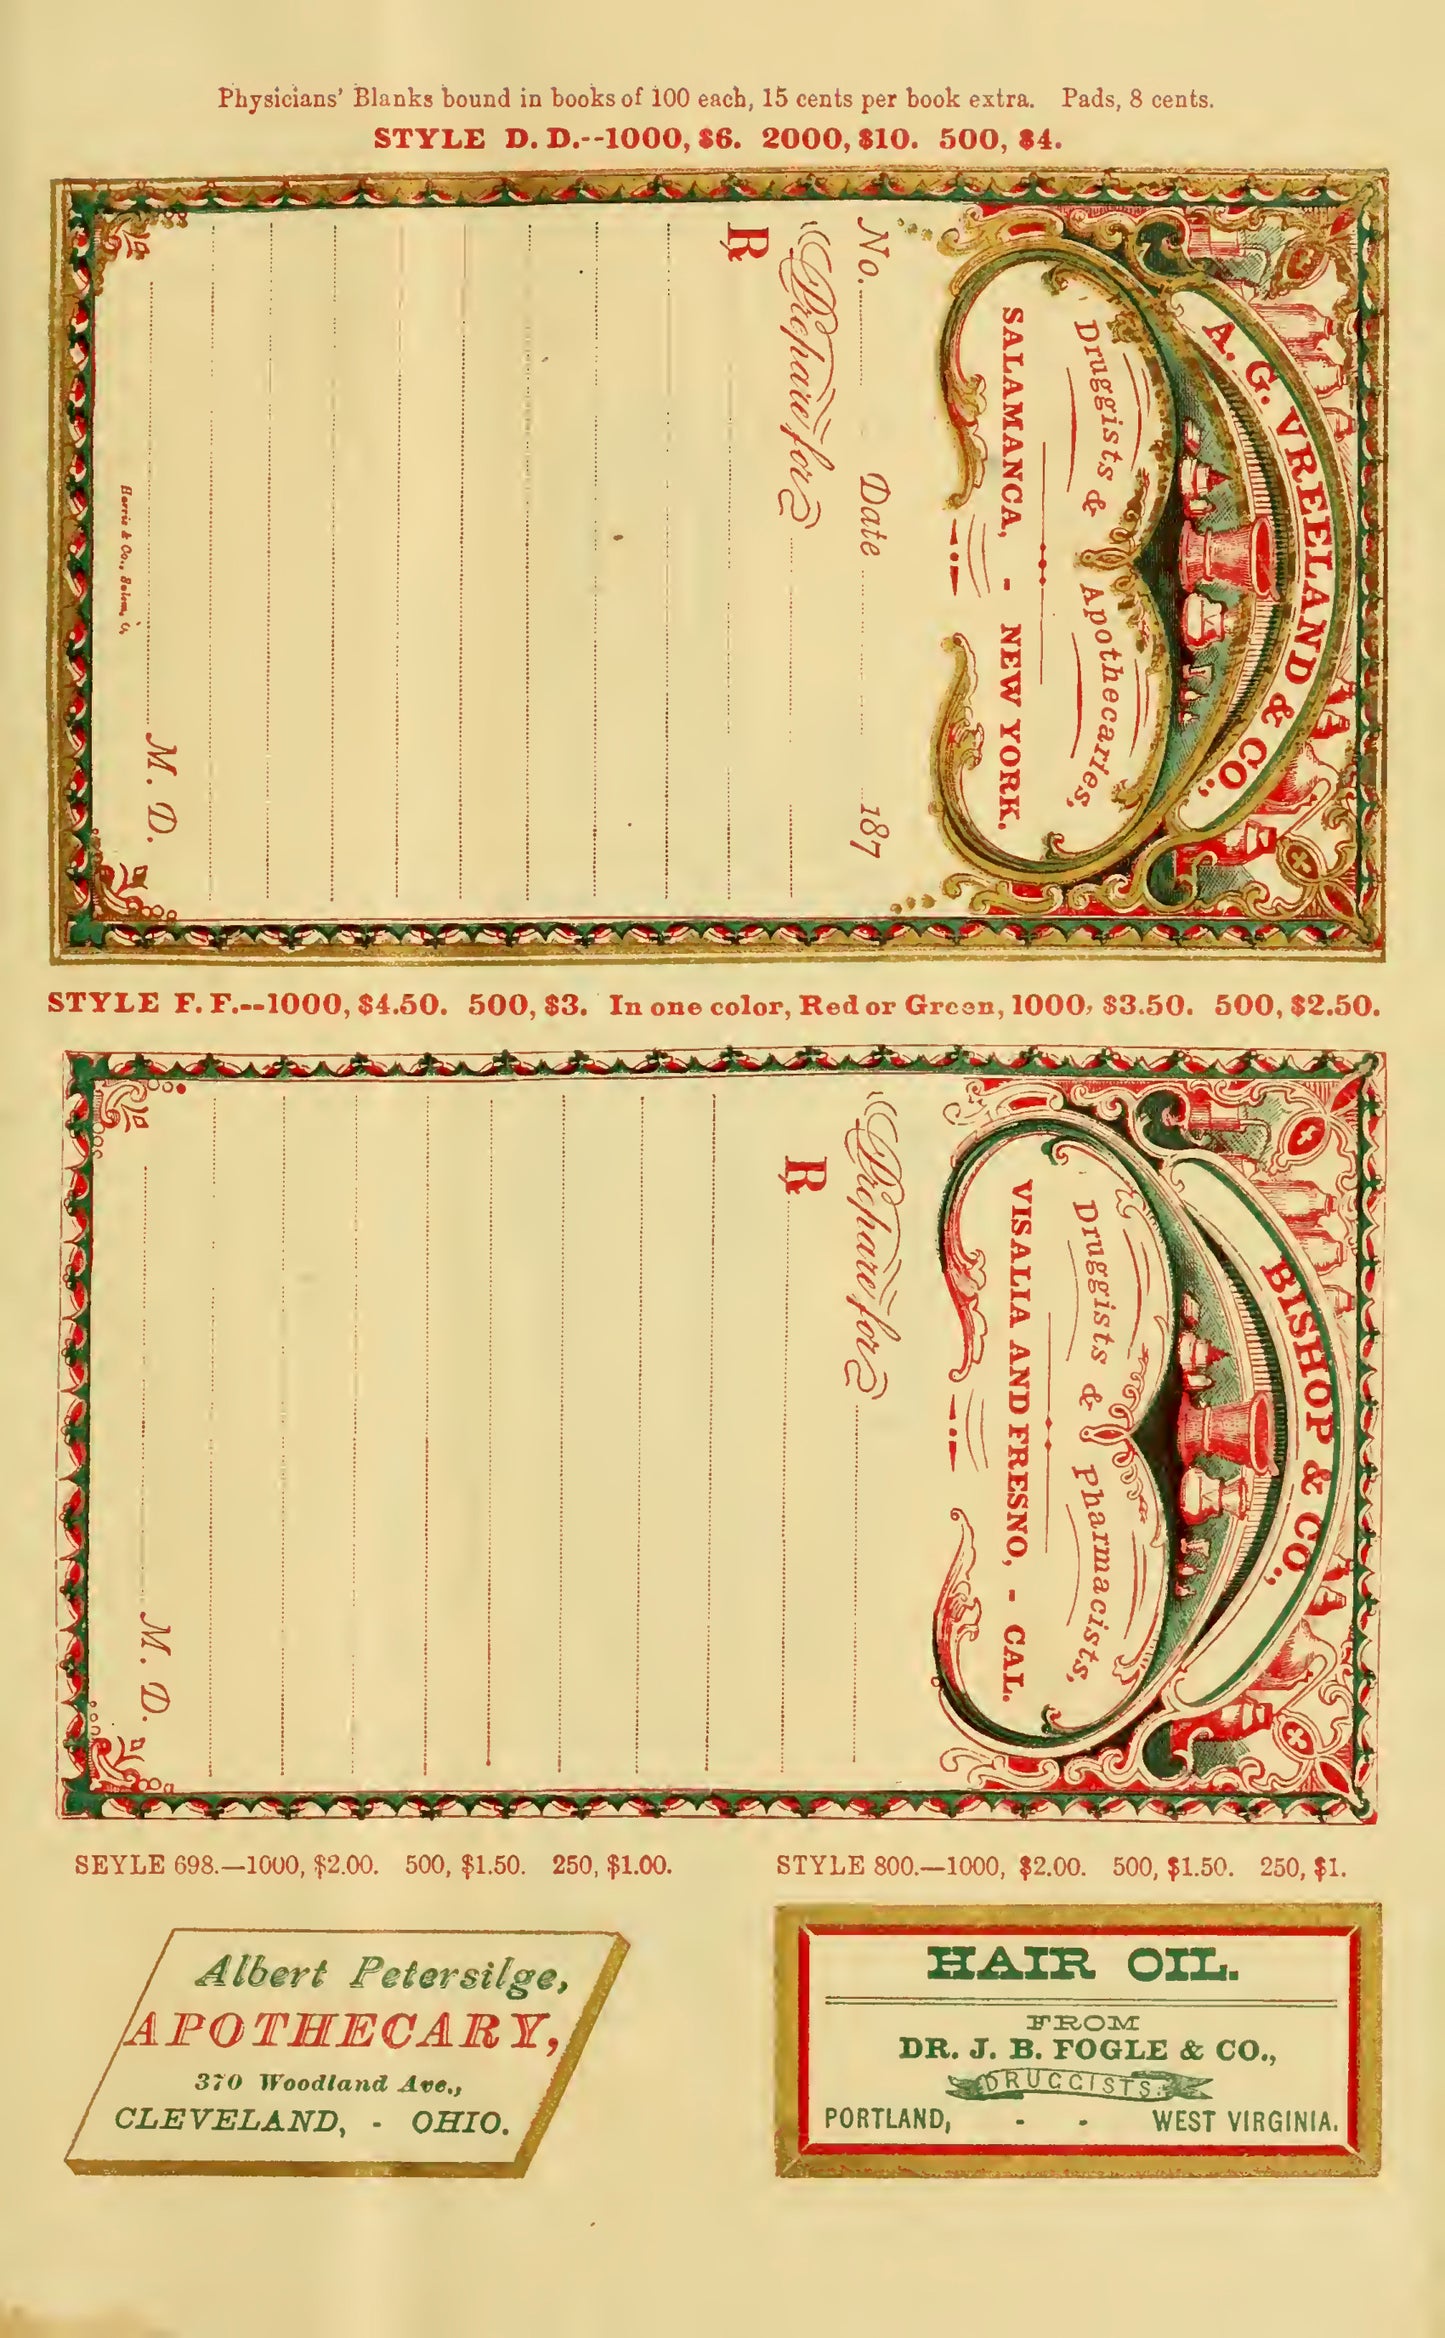 Physicians' Blanks bound in books of 100 each, 15 cents per book extra. Pads, 8 cents.
STYLE D. D.--1000, $6. 2000, $10. 500, $4.
A. G. VREELAND & CO.,
Druggists & Apothecaries,
SALAMANCA, - NEW YORK.
No. Date 187
Prepare for
℞
M. D.
Harris & Co., Salem, O,
STYLE F. F.--1000, $4.50. 500, $3. In one color, Red or Green, 1000, $3.50. 500, $2.50.
BISHOP & CO.,
Druggists & Pharmacists,
VISALIA AND FRESNO, - CAL.
Prepare for
℞
M. D.
SEYLE 698.—1000, $2.00. 500, $1.50. 250, $1.00.
Albert Petersilge,
APOTHECARY,
370 Woodland Ave.,
CLEVELAND, - OHIO.
STYLE 800.—1000, $2.00. 500, $1.50. 250, $1.
HAIR OIL.
FROM
DR. J. B. FOGLE & CO.,
DRUGGISTS.
PORTLAND, - - WEST VIRGINIA.